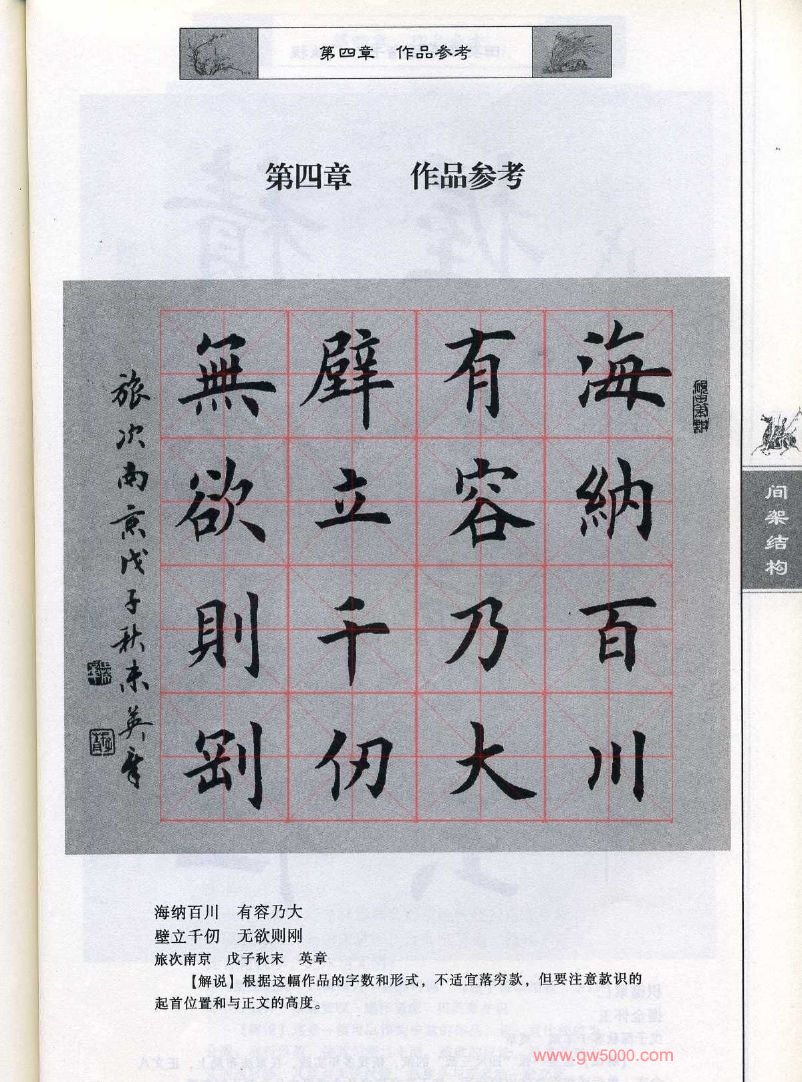 第四章 作品参考
第四章 作品参考
海納百川
有容乃大
壁立千仞
無欲則剛
旅次南京戊子秋末英章
间架结构
海纳百川 有容乃大
壁立千仞 无欲则刚
旅次南京 戊子秋末 英章
【解说】根据这幅作品的字数和形式，不适宜落穷款，但要注意款识的
起首位置和与正文的高度。
www.gw5000.com